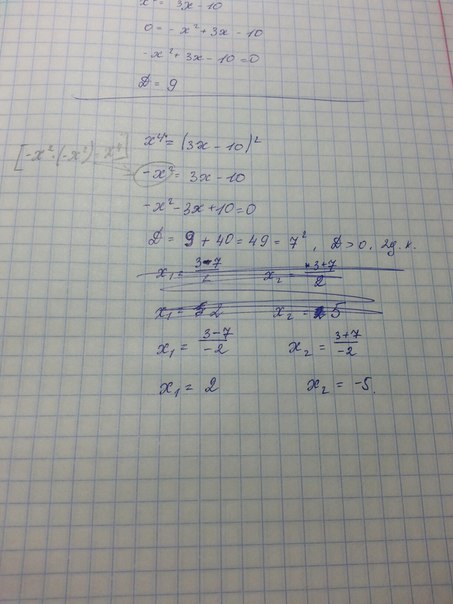 x² = 3x - 10
0 = - x² + 3x - 10
-x² + 3x - 10 = 0
D = 9
x⁴ = (3x - 10)²
[-x² · (-x²) = x⁴]
-x² = 3x - 10
-x² - 3x + 10 = 0
D = 9 + 40 = 49 = 7², D > 0, 2 д.к.
x₁ = 3-7/2 x₂ = 3+7/2
x₁ = 2 x₂ = 5
x₁ = 3-7/-2 x₂ = 3+7/-2
x₁ = 2 x₂ = -5.